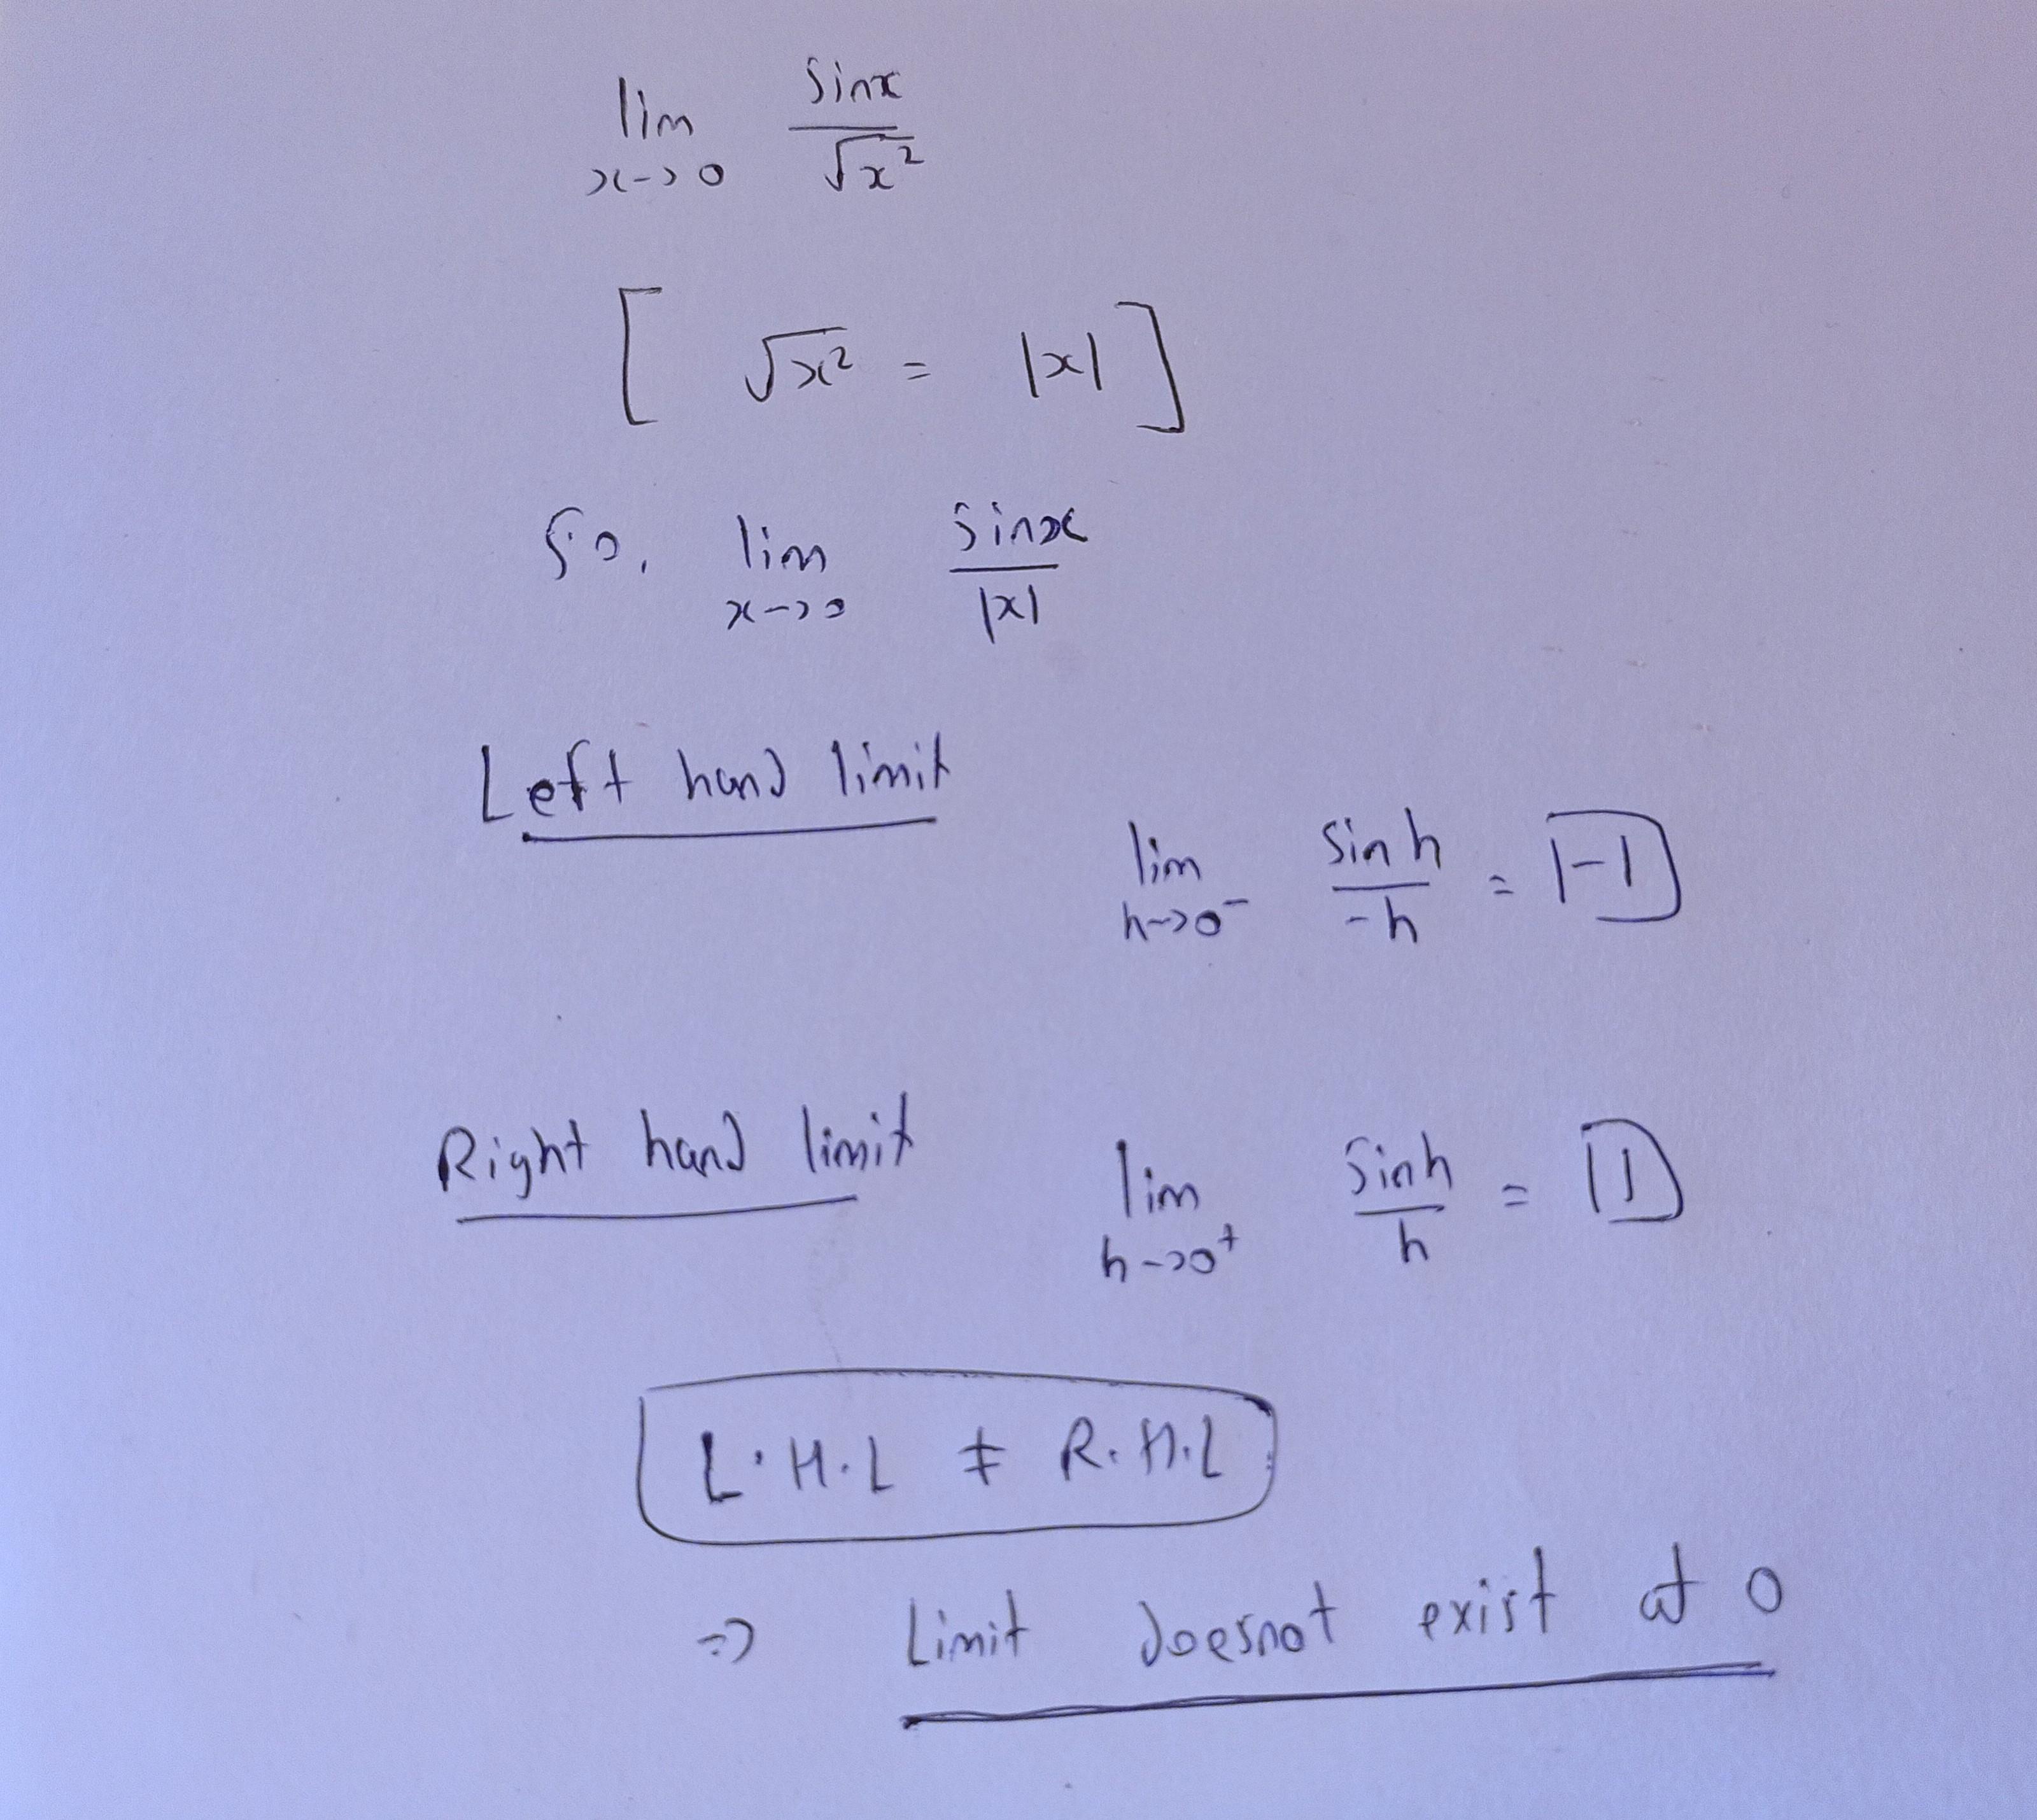 lim sinx / √x²
x->0
[ √x² = |x| ]
So, lim sinx / |x|
x->0
Left hand limit
lim sinh / -h = -1
h->0⁻
Right hand limit
lim sinh / h = 1
h->0⁺
L.H.L ≠ R.H.L
=> Limit doesnot exist at 0